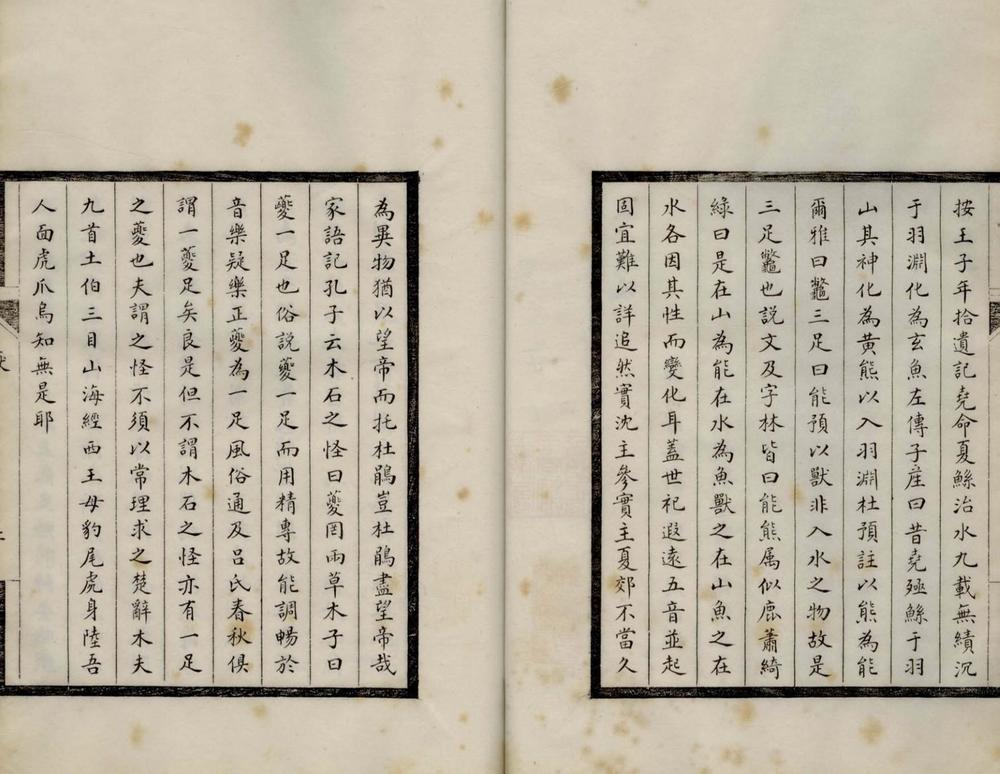 按王子年拾遺記堯命夏鯀治水九載無績沉
于羽淵化為玄魚左傳子産曰昔堯殛鯀于羽
山其神化為黃熊以入羽淵杜預註以熊為能
爾雅曰鼈三足曰能預以獸非入水之物故是
三足鼈也説文及字林皆曰能熊属似鹿蕭綺
綠曰是在山為能在水為魚獸之在山魚之在
水各因其性而變化耳蓋世祀遐遠五音並起
固宜難以詳追然實沈主參實主夏郊不當久
為異物猶以望帝而托杜鵑豈杜鵑盡望帝哉
家語記孔子云木石之怪曰夔罔兩草木子曰
夔一足也俗説夔一足而用精專故能調暢於
音樂疑樂正夔為一足風俗通及呂氏春秋俱
謂一夔足矣良是但不謂木石之怪亦有一足
之夔也夫謂之怪不須以常理求之楚辭木夫
九首土伯三目山海經西王母豹尾虎身陸吾
人面虎爪烏知無是耶